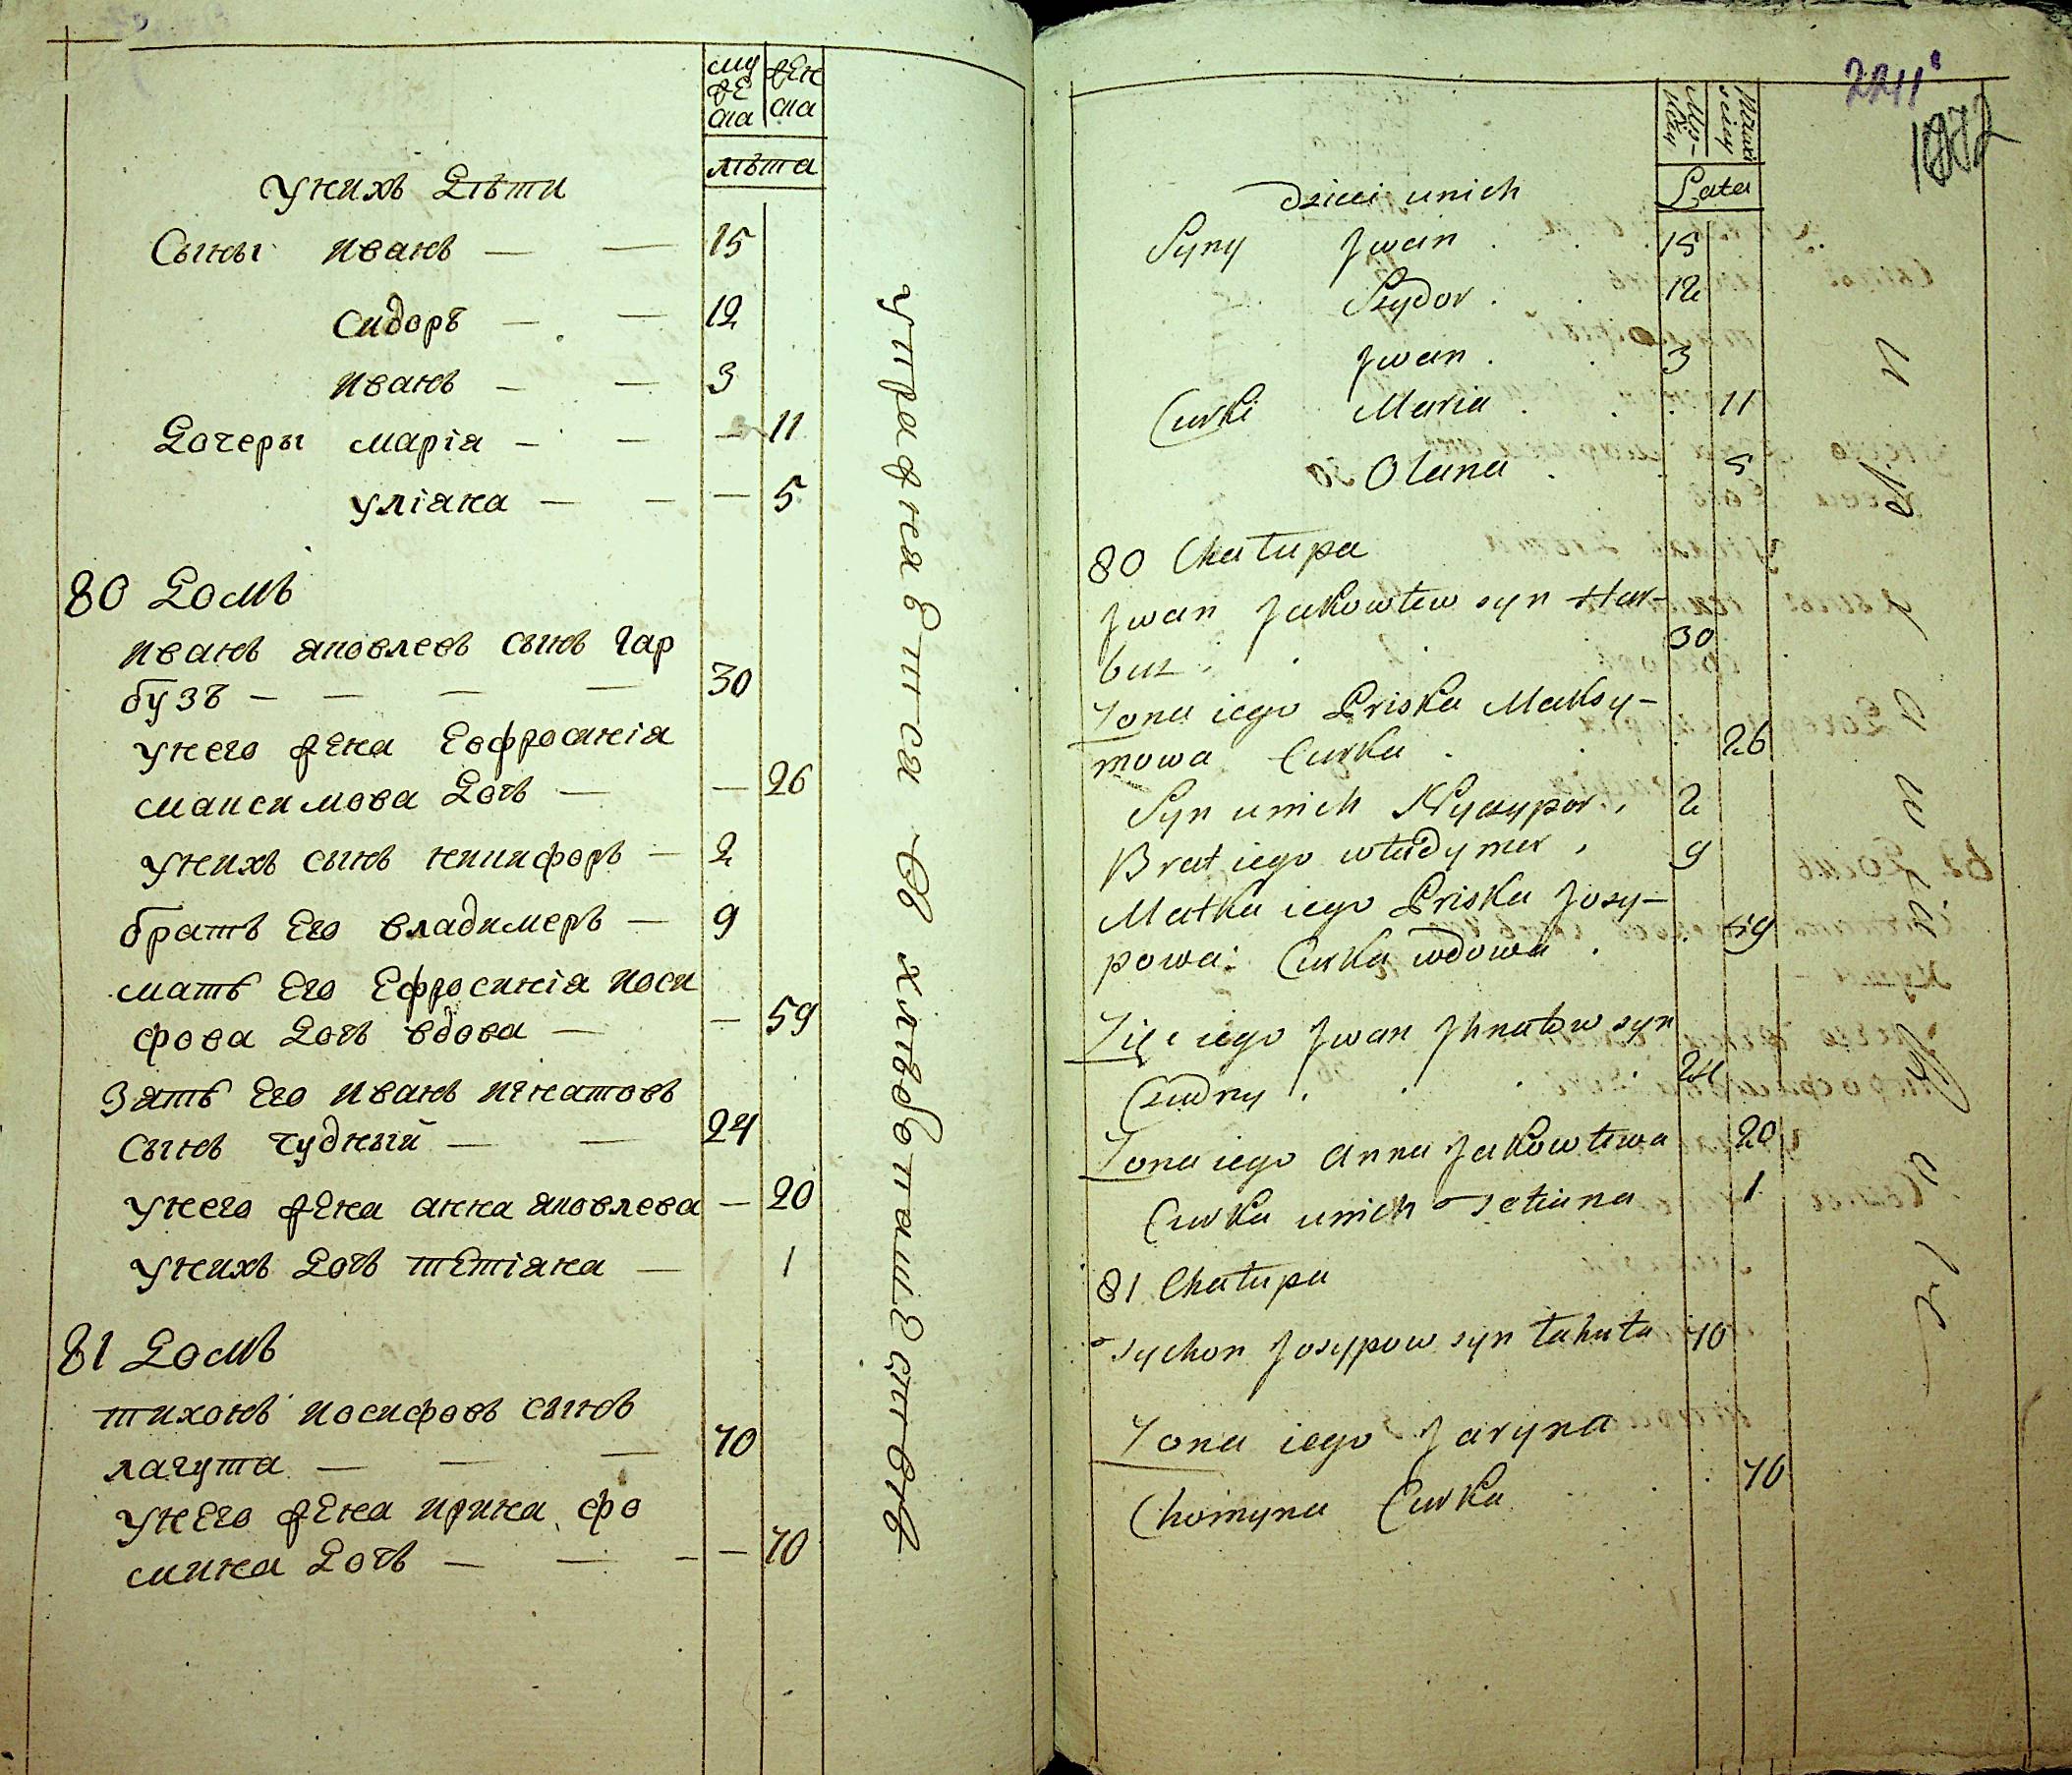 муже
ска
женска
лѣта
унихъ дѣти
Сыны иванъ — — 15
сидоръ — — 12
иванъ — — 3
дочеры марія — — — 11
уліяна — — — 5
80 домъ
иванъ яковлевъ сынъ гар
бузъ — — — — 30
унего жена Еофросинія
максимова дочъ — — 26
унихъ сынъ никифоръ — 2
братъ Его владимеръ — 9
мать Его Ефросинія иоси
фова дочъ вдова — — 59
зять Его иванъ игнатовъ
сынъ чудный — — 24
унего жена анна яковлева — 20
унихъ дочъ тетіяна — 1
81 домъ
тихонъ иосифовъ сынъ
лагута — — — 70
унЕго жена ирина фо
мина дочъ — — — — 70
упражняется въ хлѣбопашествѣ
2211
Lata
Dzieci unich
Syny Jwan . . 15
Szydor . . 12
Jwan . . 3
Curki Maria . . . 11
Olana . . 5
80 Chałupa
Jwan Jakowlew syn Har-
buz . . . 30
Zona iego Priska Maksy-
mowa Curka . . . 26
Syn unich Nyczypor . 2
Brat iego władymer . 9
Matka iego Priska Josy-
powa Curka wdowa . . 59
Zięć iego Jwan Jhnatow syn
Czudny . . . . 24
Zona iego Anna Jakowlewa 20
Curka unich Tetiana 1
81 Chałupa
Tychon Josypow syn Łahuta 70
Zona iego Jaryna
Chomyna Curka . . . 70